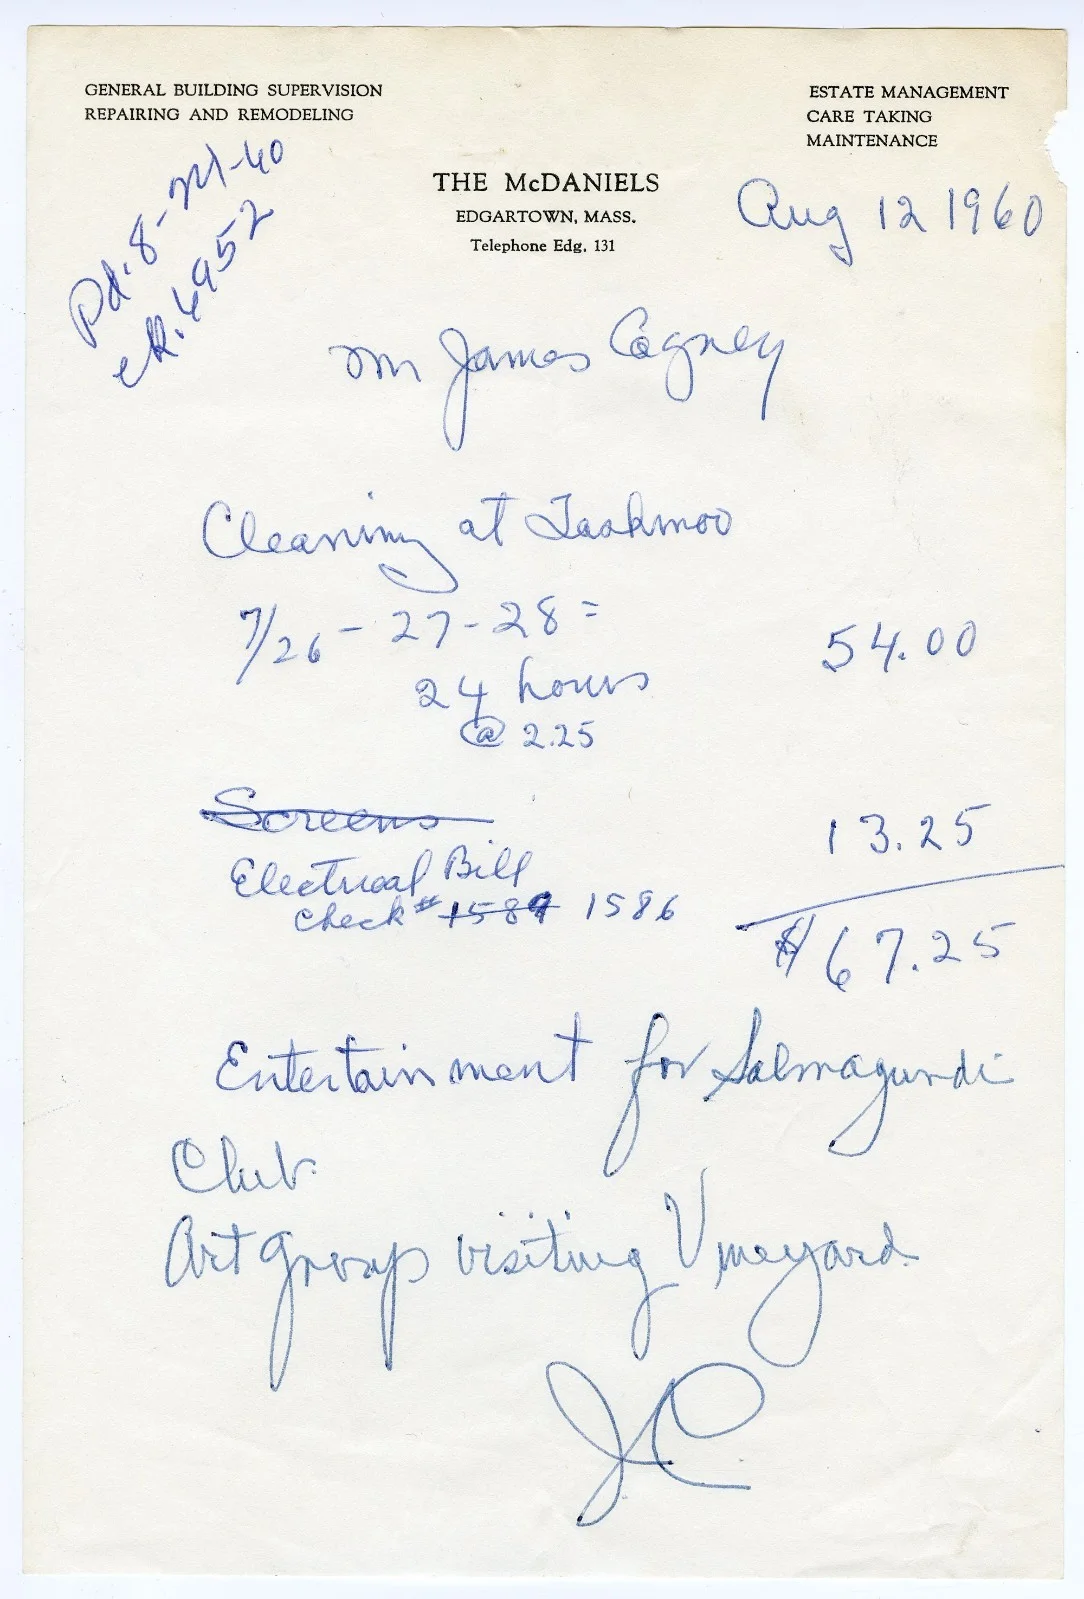 GENERAL BUILDING SUPERVISION
REPAIRING AND REMODELING
ESTATE MANAGEMENT
CARE TAKING
MAINTENANCE
THE McDANIELS
EDGARTOWN, MASS.
Telephone Edg. 131
Aug 12 1960
Pd. 8-24-60
ck. 6952
Mr James Cagney
Cleaning at Tashmoo
7/26 - 27 - 28 =
54.00
24 hours
@ 2.25
Screens
13.25
Electrical Bill
Check # 1589 1586
$67.25
Entertainment for Salmagundi
Club
Art Group visiting Vineyard
JC